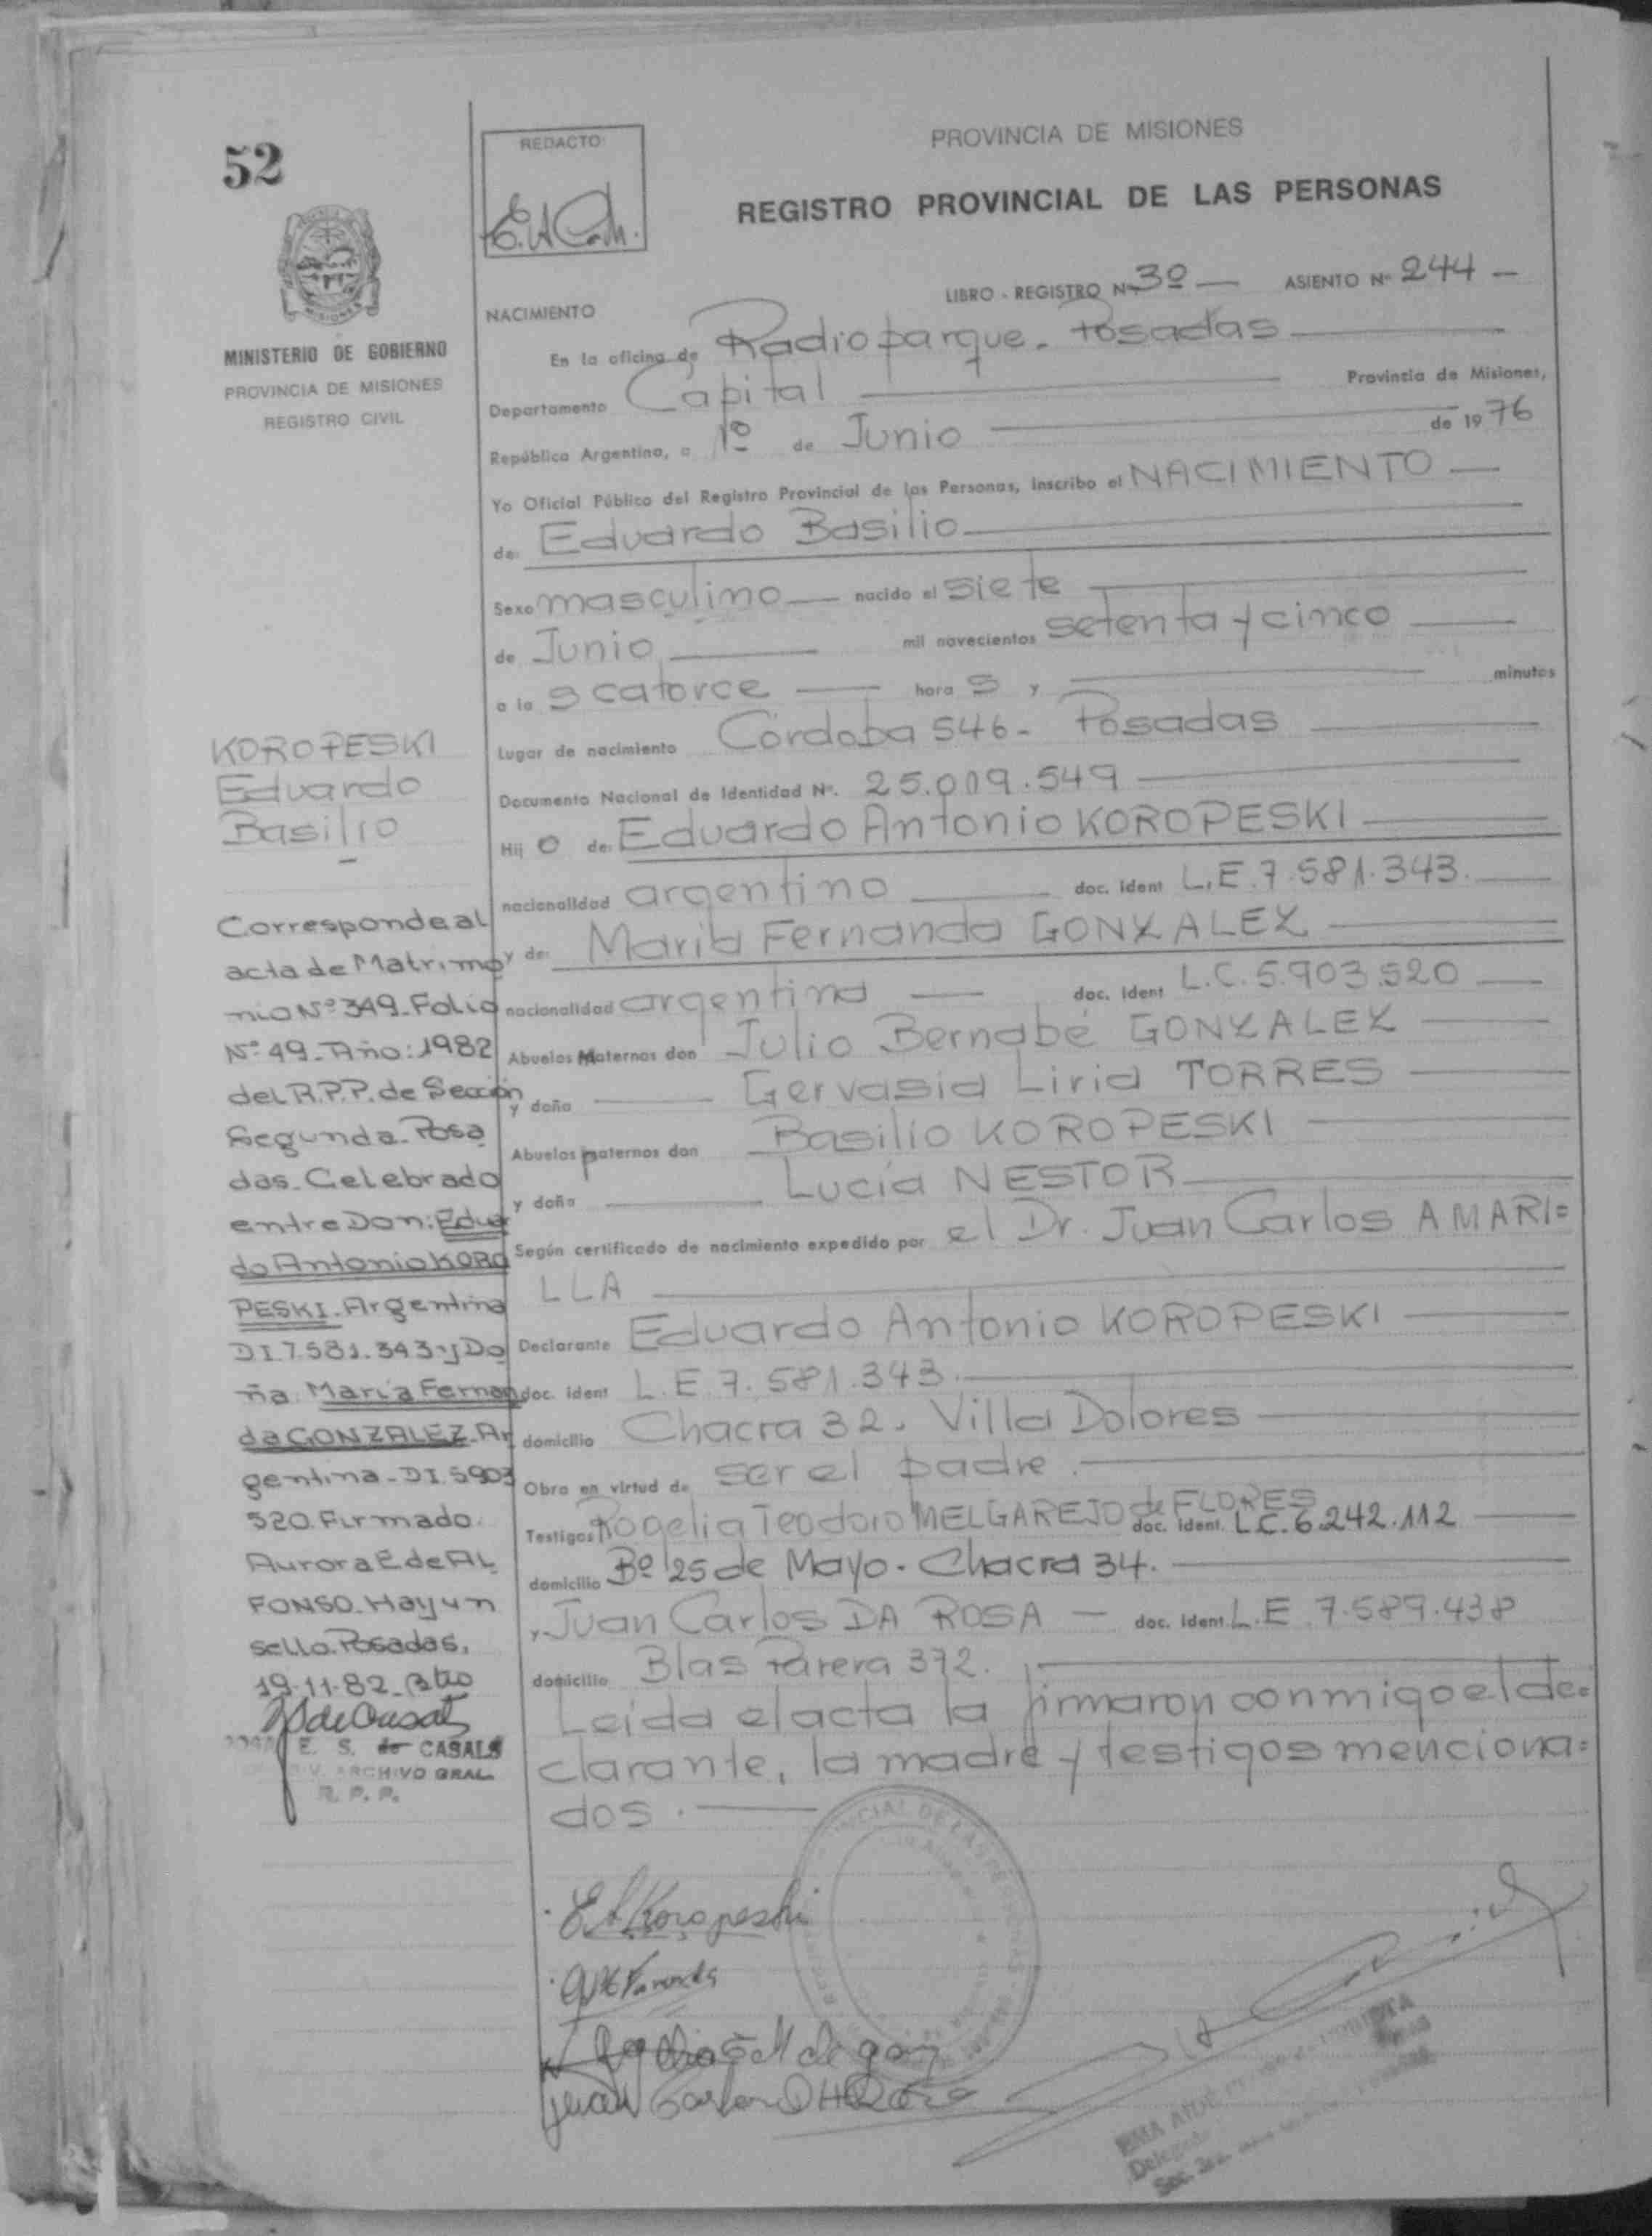 52
REDACTO:
PROVINCIA DE MISIONES
REGISTRO PROVINCIAL DE LAS PERSONAS
MINISTERIO DE GOBIERNO
PROVINCIA DE MISIONES
REGISTRO CIVIL
LIBRO - REGISTRO Nº 3º — ASIENTO Nº 244 —
NACIMIENTO
En la oficina de Radioparque. Posadas
Departamento Capital Provincia de Misiones,
República Argentina, a 1º de Junio de 1976
Yo Oficial Público del Registro Provincial de las Personas, inscribo el NACIMIENTO
de: Eduardo Basilio
Sexo masculino nacido el siete
de Junio mil novecientos setenta y cinco
a la s catorce hora s y minutos
Lugar de nacimiento Córdoba 546 - Posadas
Documento Nacional de Identidad Nº. 25.009.549
Hij o de: Eduardo Antonio KOROPESKI
nacionalidad argentino doc. ident L.E. 7.581.343.
y de: María Fernanda GONZALEZ
nacionalidad argentina doc. ident L.C. 5.903.520
Abuelos Maternos don Julio Bernabé GONZALEZ
y doña Gervasia Liria TORRES
Abuelos paternos don Basilio KOROPESKI
y doña Lucía NESTOR
Según certificado de nacimiento expedido por el Dr. Juan Carlos AMARI=
LLA
Declarante Eduardo Antonio KOROPESKI
doc. ident L.E. 7.581.343.
domicilio Chacra 32. Villa Dolores
Obra en virtud de ser el padre.
Testigos Rogelia Teodoro MELGAREJO de FLORES doc. ident. L.C. 6.242.112
domicilio Bº 25 de Mayo - Chacra 34.
y Juan Carlos DA ROSA — doc. ident. L.E. 7.589.438
domicilio Blas Parera 372.
Leída el acta la firmaron conmigo el de=
clarante, la madre y testigos menciona=
dos.
KOROPESKI
Eduardo
Basilio
Corresponde al
acta de Matrimo
nio Nº 349 - Folio
Nº 49 - Año: 1982
del R.P.P. de Sección
Segunda - Posa
das - Celebrado
entre Don: Eduar
do Antonio KORO
PESKI - Argentino
DI 7.581.343 y Do
ña: María Fernan
da GONZALEZ - Ar
gentina - DI. 5903
520. Firmado.
Aurora E de AL
FONSO. Hay un
sello. Posadas,
19-11-82
E. S. de CASALS
ARCHIVO GRAL.
R. P. P.
E A Koropeski